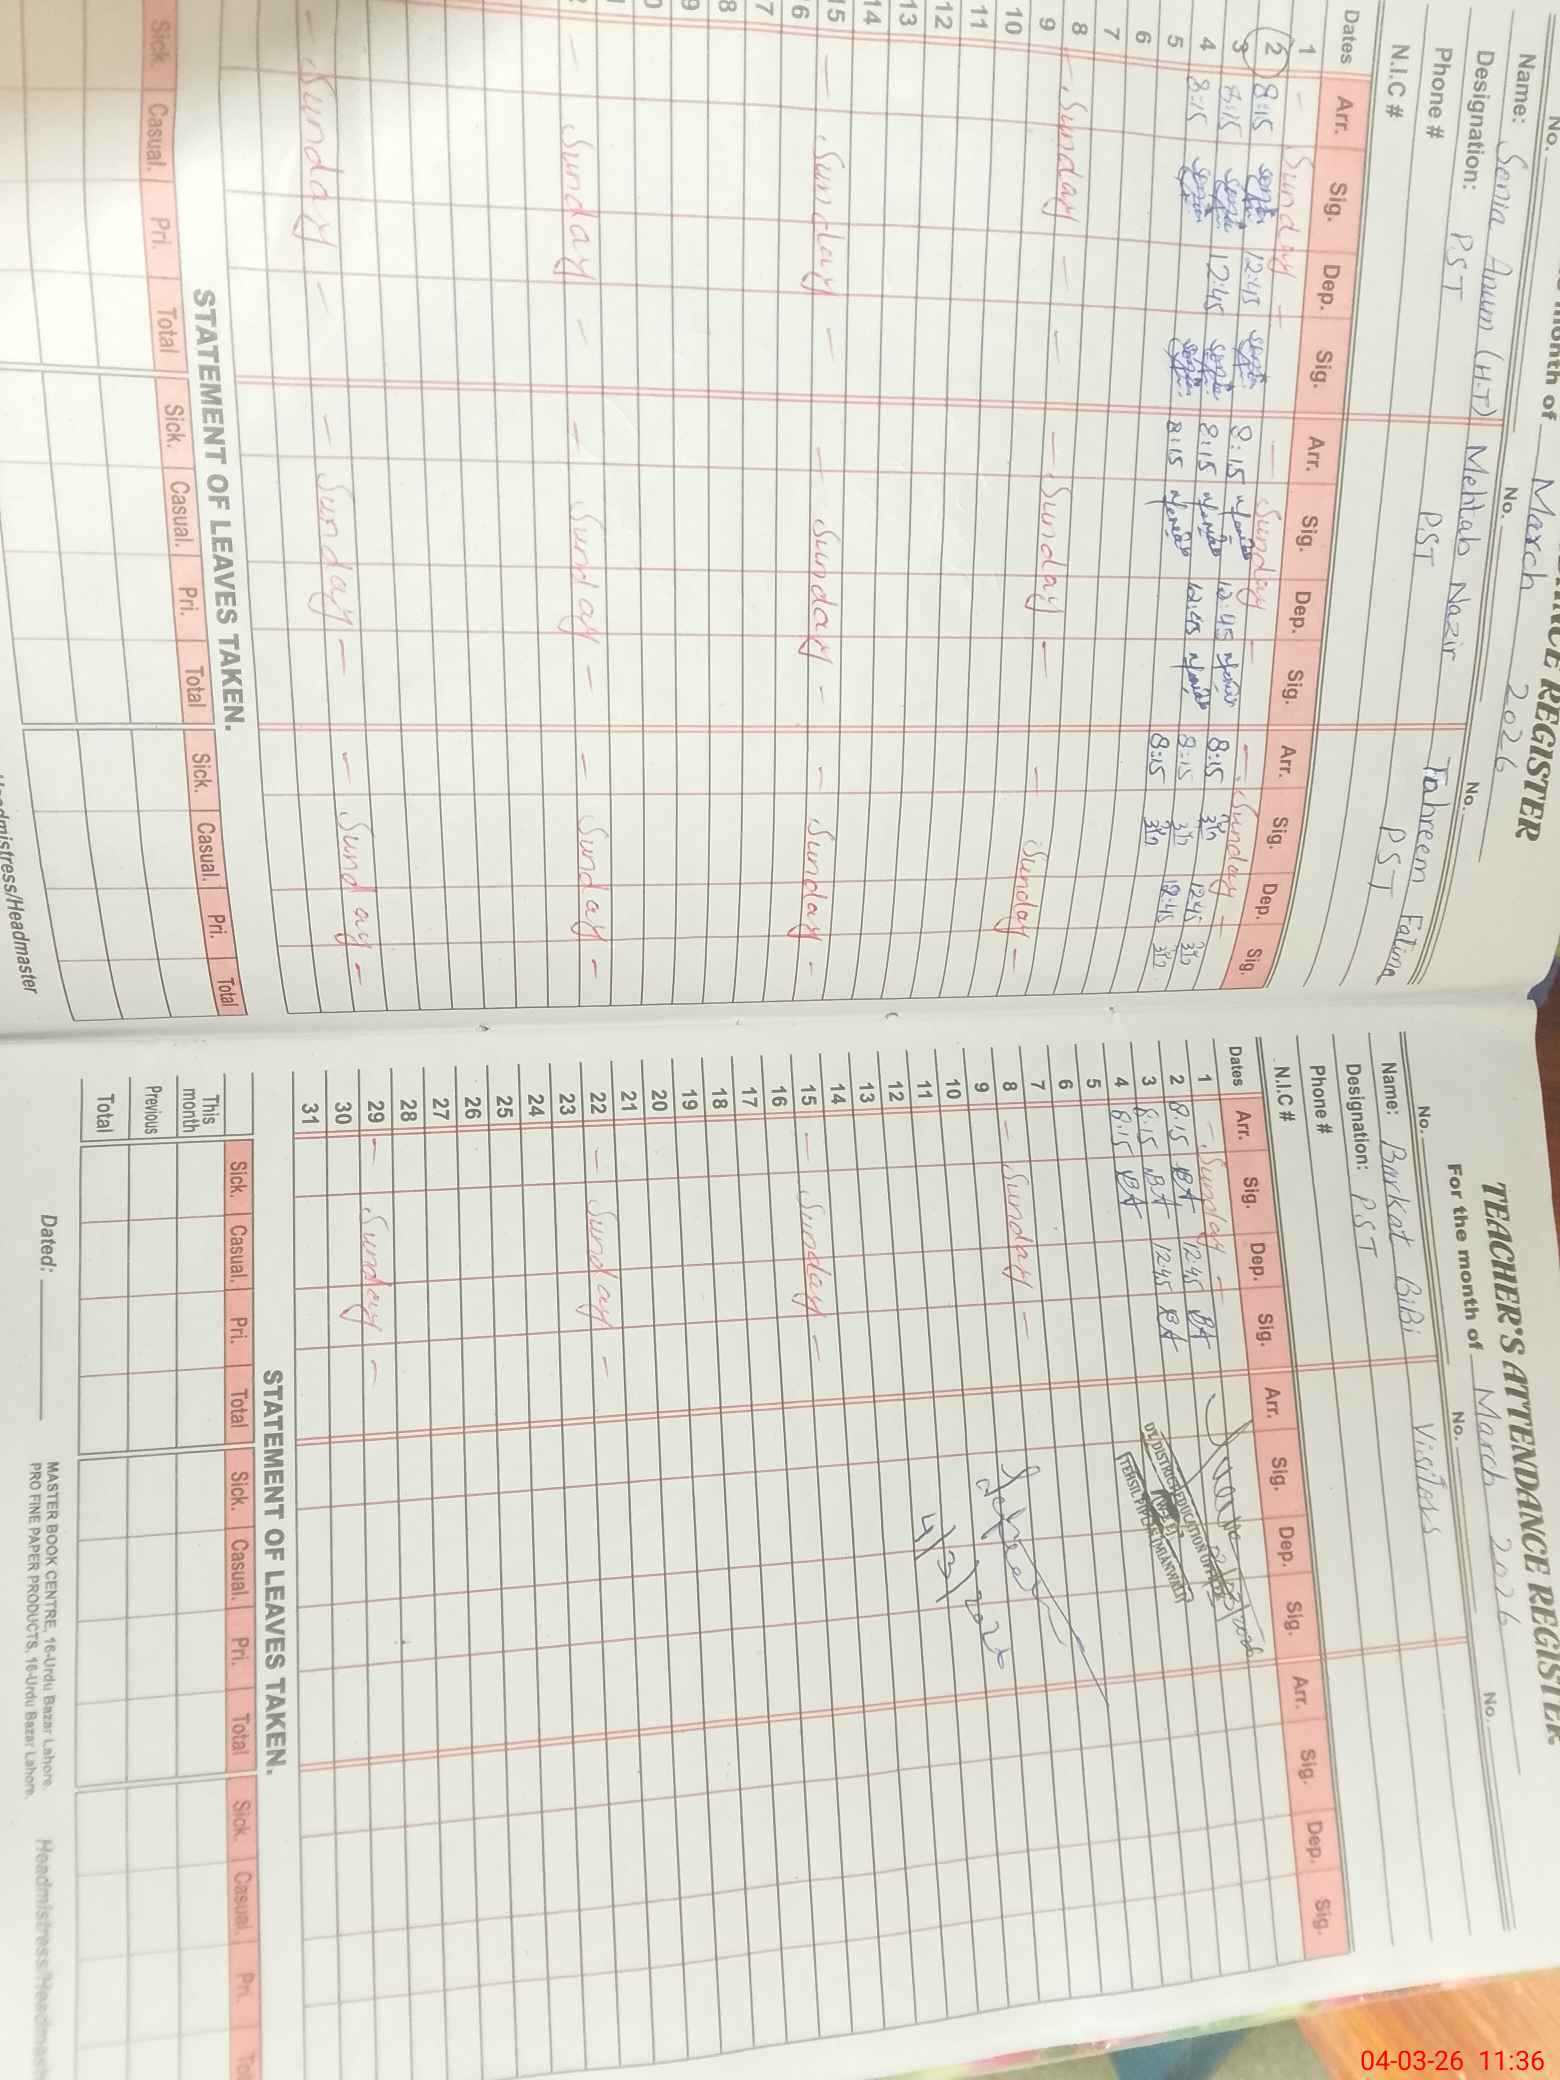 For the month of March 2026
No. No. No.
Name: Sonia Anum (H.T) Mehtab Nazir Tahreem Fatima
Designation: PST PST PST
Phone #
N.I.C #
Dates Arr. Sig. Dep. Sig. Arr. Sig. Dep. Sig. Arr. Sig. Dep. Sig.
1 - Sunday - - Sunday - - Sunday -
2 8:15 12:45 8:15 12:45 8:15 12:45
3 8:15 12:45 8:15 12:45 8:15 12:45
4 8:15 8:15 8:15
5
6
7
8 - Sunday - - Sunday - - Sunday -
9
10
11
12
13
14
15 - Sunday - - Sunday - - Sunday -
16
17
- Sunday - - Sunday - - Sunday -
- Sunday - - Sunday - - Sunday -
STATEMENT OF LEAVES TAKEN.
Sick. Casual. Pri. Total Sick. Casual. Pri. Total Sick. Casual. Pri. Total
Headmistress/Headmaster
TEACHER'S ATTENDANCE REGISTER
For the month of March 2026
No. No. No.
Name: Barkat BiBi Visitors
Designation: PST
Phone #
N.I.C #
Dates Arr. Sig. Dep. Sig. Arr. Sig. Dep. Sig. Arr. Sig. Dep. Sig.
1 - Sunday -
2 8:15 BA 12:45 BA
3 8:15 BA 12:45 BA
4 8:15 BA
5
6
7
8 - Sunday -
9
10
11
12
13
14
15 - Sunday -
16
17
18
19
20
21
22 - Sunday -
23
24
25
26
27
28
29 - Sunday -
30
31
DISTRICT EDUCATION
4/3/202
STATEMENT OF LEAVES TAKEN.
Sick. Casual. Pri. Total Sick. Casual. Pri. Total Sick. Casual. Pri.
This month
Previous
Total
Dated:
MASTER BOOK CENTRE, 16-Urdu Bazar Lahore.
PRO FINE PAPER PRODUCTS, 16-Urdu Bazar Lahore.
04-03-26 11:36